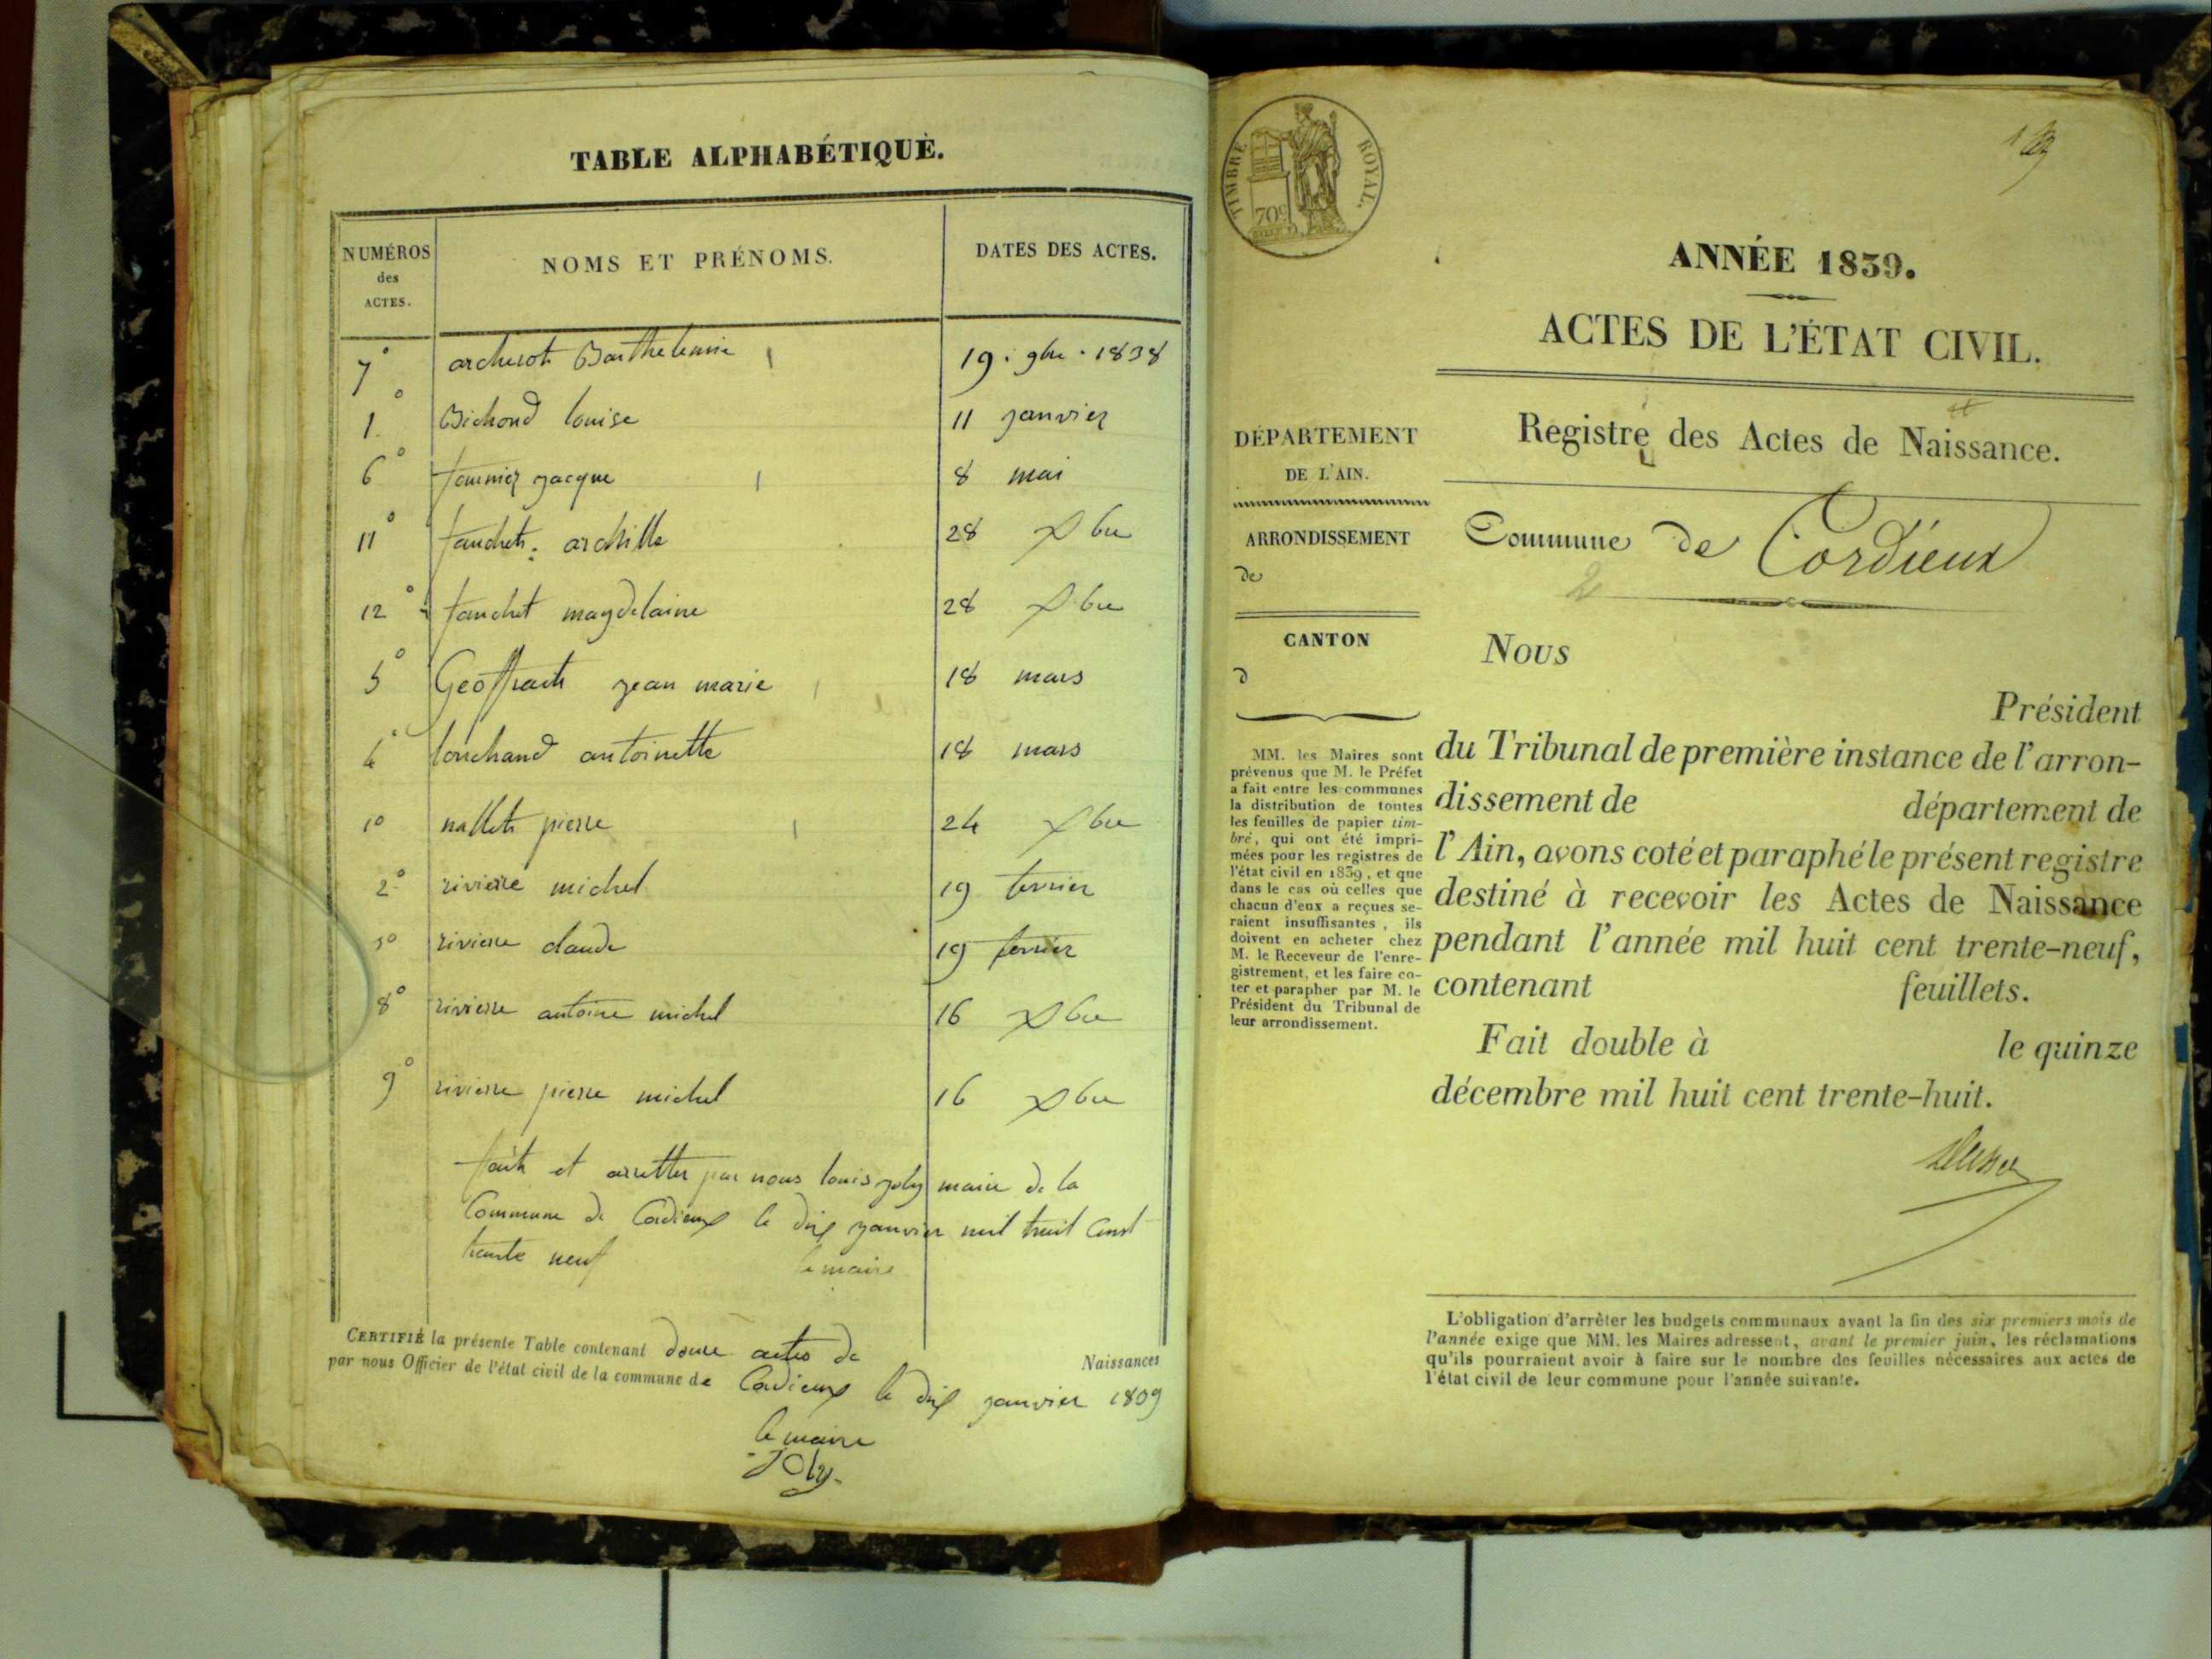 TABLE ALPHABÉTIQUE.
NUMÉROS des ACTES. NOMS ET PRÉNOMS. DATES DES ACTES.
7° Barthelemie 19. 9bre. 1838
1° Bichond louise 11 janvier
6° fournier jacque 8 mai
11° fauchet. archille 28 Xbre
12° fauchet magdelaine 28 Xbre
5° Geoffrait jean marie 18 mars
4° antoinette 18 mars
10 nallet pierre 24 Xbre
2° riviere michel 19 fevrier
3° riviere claude 19 fevrier
8° riviere antoine michel 16 Xbre
9° riviere pierre michel 16 Xbre
fait et arretter par nous louis joly maire de la
Commune de Cordieux le dix janvier mil huit Cent
trente neuf le maire
CERTIFIÉ la présente Table contenant douze actes de Naissances
par nous Officier de l'état civil de la commune de Cordieux le dix janvier 1839
le maire
Joly
TIMBRE ROYAL.
709
ANNÉE 1839.
ACTES DE L'ÉTAT CIVIL.
Registre des Actes de Naissance.
DÉPARTEMENT
DE L'AIN.
ARRONDISSEMENT
de
CANTON
d
Commune de Cordieux
2
MM. les Maires sont
prévenus que M. le Préfet
a fait entre les communes
la distribution de toutes
les feuilles de papier tim-
bré, qui ont été impri-
mées pour les registres de
l'état civil en 1839, et que
dans le cas où celles que
chacun d'eux a reçues se-
raient insuffisantes, ils
doivent en acheter chez
M. le Receveur de l'enre-
gistrement, et les faire co-
ter et parapher par M. le
Président du Tribunal de
leur arrondissement.
Nous
Président
du Tribunal de première instance de l'arron-
dissement de département de
l'Ain, avons coté et paraphé le présent registre
destiné à recevoir les Actes de Naissance
pendant l'année mil huit cent trente-neuf,
contenant feuillets.
Fait double à le quinze
décembre mil huit cent trente-huit.
L'obligation d'arrêter les budgets communaux avant la fin des six premiers mois de
l'année exige que MM. les Maires adressent, avant le premier juin, les réclamations
qu'ils pourraient avoir à faire sur le nombre des feuilles nécessaires aux actes de
l'état civil de leur commune pour l'année suivante.